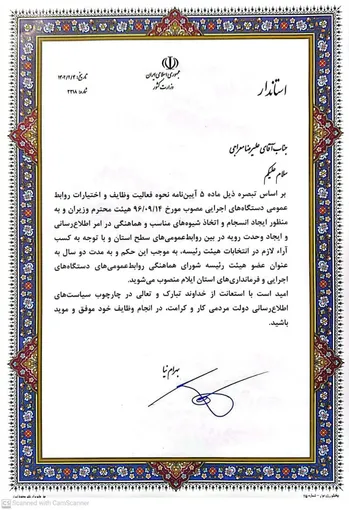 استاندار
جمهوری اسلامی ایران
وزارت کشور
تاریخ:
شماره: ۲۳۱۸
جناب آقای علیرضا معراجی
سلام علیکم
بر اساس تبصره ذیل ماده ۵ آیین‌نامه نحوه فعالیت وظایف و اختیارات روابط
عمومی دستگاه‌های اجرایی مصوب مورخ ۹۶/۰۹/۱۴ هیئت محترم وزیران و به
منظور ایجاد انسجام و اتخاذ شیوه‌های مناسب و هماهنگی در امر اطلاع‌رسانی
و ایجاد وحدت رویه در بین روابط‌عمومی‌های سطح استان و با توجه به کسب
آراء لازم در انتخابات هیئت رئیسه، به موجب این حکم و به مدت دو سال به
عنوان عضو هیئت رئیسه شورای هماهنگی روابط‌عمومی‌های دستگاه‌های
اجرایی و فرمانداری‌های استان ایلام منصوب می‌شوید.
امید است با استعانت از خداوند تبارک و تعالی در چارچوب سیاست‌های
اطلاع‌رسانی دولت مردمی کار و کرامت، در انجام وظایف خود موفق و موید
باشید.
بهرام نیا
CS Scanned with CamScanner